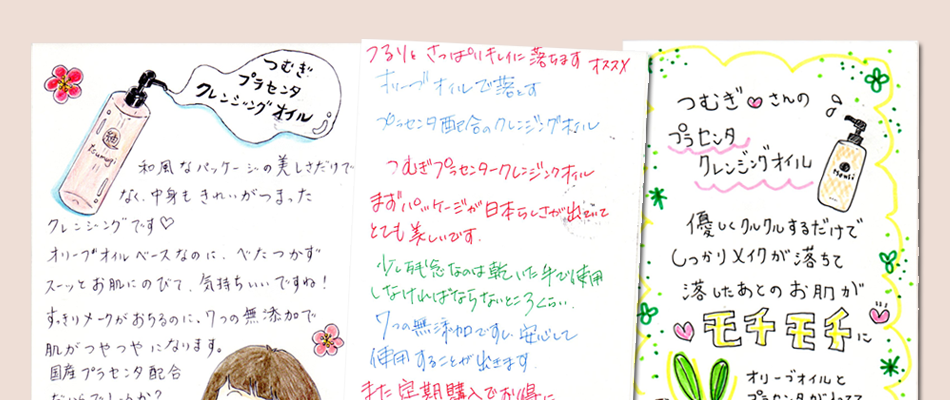 つむぎ
プラセンタ
クレンジングオイル
紬
tsumugi
和風なパッケージの美しさだけで
なく、中身もきれいがつまった
クレンジングです♡
オリーブオイルベースなのに、べたつかず
スーッとお肌にのびて、気持ちいいですね!
すっきりメークがおちるのに、7つの無添加で
肌がつやつやになります。
国産プラセンタ配合
つるりと さっぱりキレイに落ちます オススメ
オリーブオイルで落とす
プラセンタ配合のクレンジングオイル
つむぎプラセンタークレンジングオイル
まずパッケージが日本らしさが出ていて
とても美しいです。
少し残念なのは乾いた手で使用
しなければならないところくらい。
7つの無添加ですし、安心して
使用することが出来ます。
また定期購入でお得に
つむぎ♡さんの
プラセンタ
クレンジングオイル
優しくクルクルするだけで
しっかりメイクが落ちて
落したあとのお肌が
モチモチに
オリーブオイルと